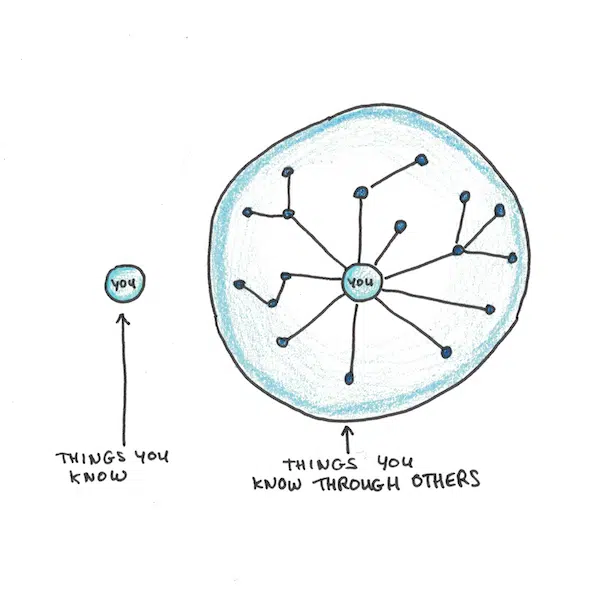 YOU
THINGS YOU
KNOW
YOU
THINGS YOU
KNOW THROUGH OTHERS